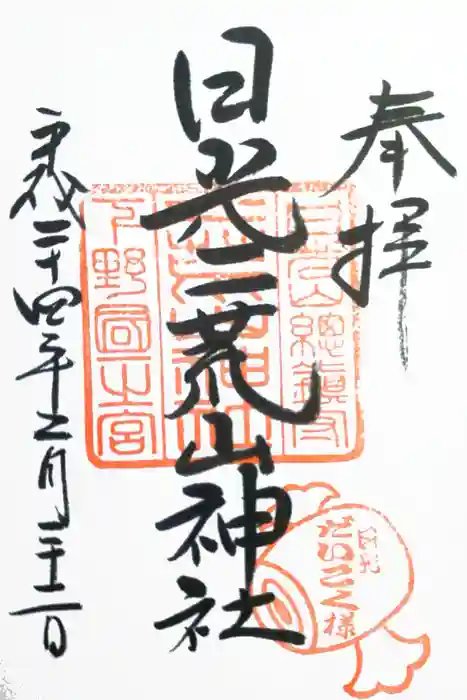 奉拝
日光二荒山神社
平成二十四年五月二十二日
日光山總鎮守
二荒山神社
下野國一之宮
日光
だいこく様